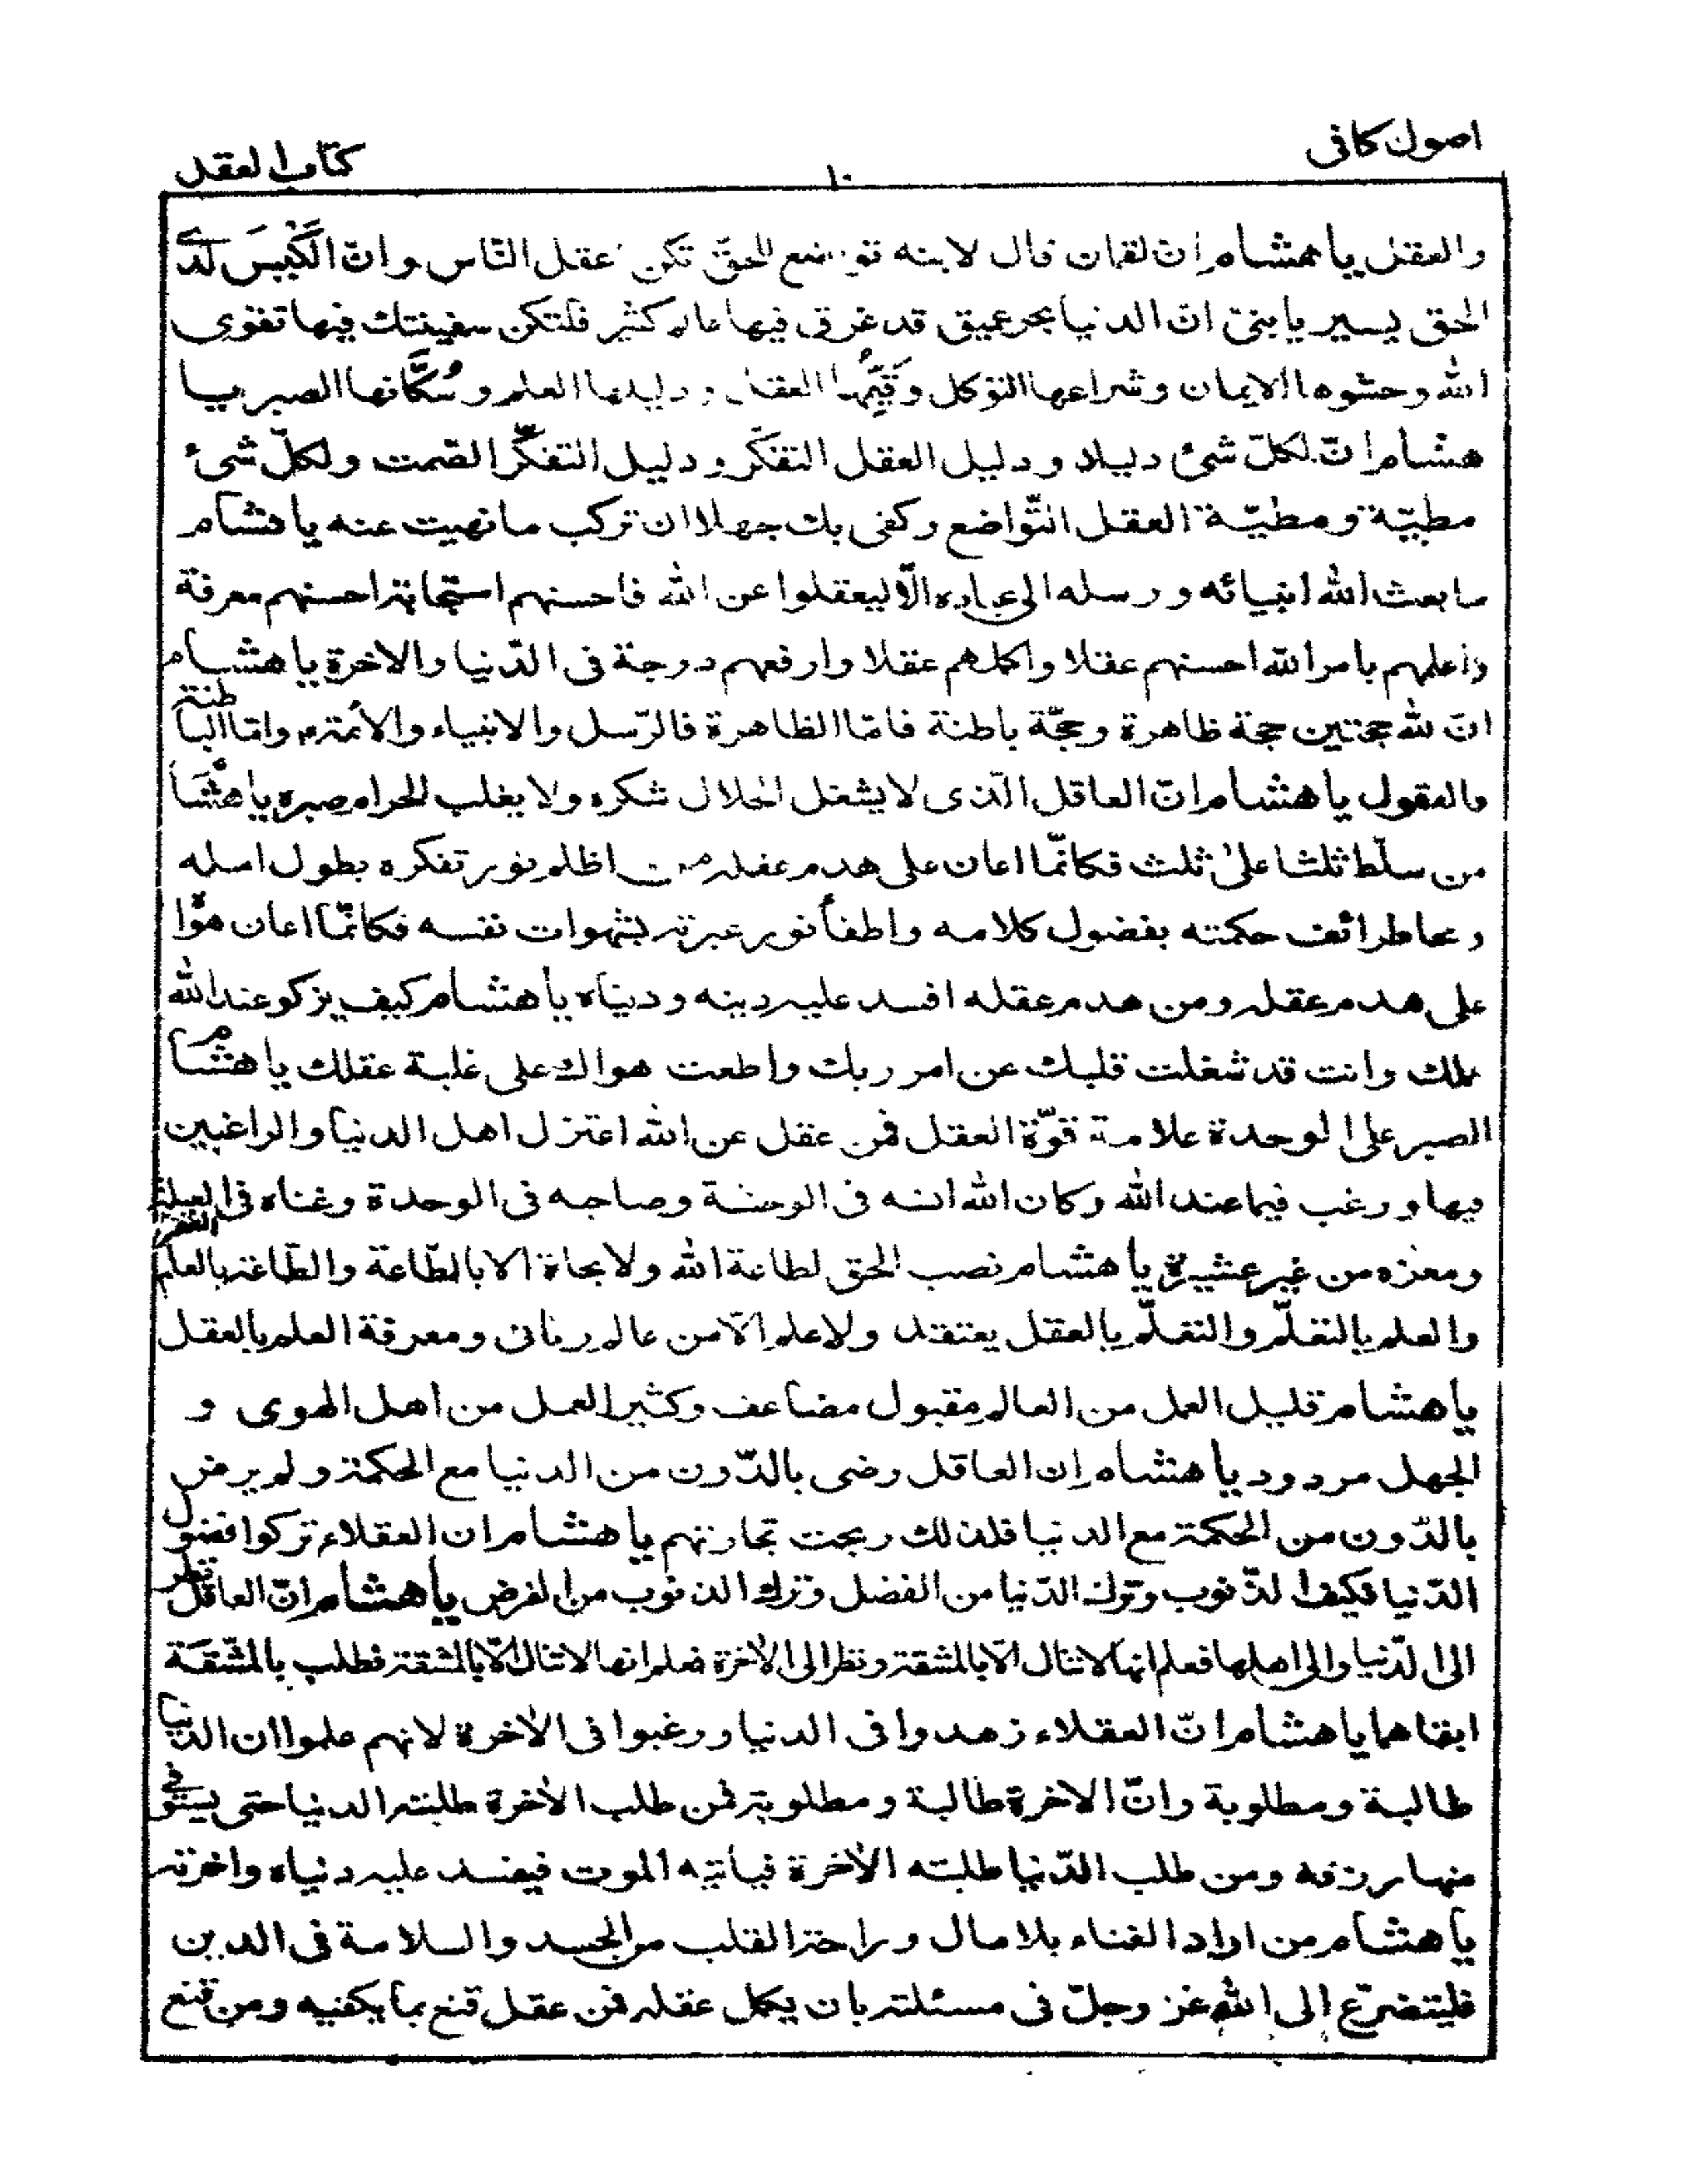 اصول كافى
١٠
كتاب العقل
والعقل يا هشام ان لقمان قال لابنه تواضع للحقّ تكن عقل النّاس وانّ الكَيّسَ لَدَى
الحق يسير يا بنىّ انّ الدنيا بحر عميق قد غرق فيها عالم كثير فلتكن سفينتك فيها تقوى
الله وحشوها الايمان وشراعها التوكل وقَيِّمُها العقل ودليلها العلم وسُكَّانها الصبر يا
هشام انّ لكلّ شئ دليلا ودليل العقل التفكّر ودليل التفكّر الصّمت ولكلّ شئ
مطيّة ومطيّة العقل التّواضع وكفى بك جهلا ان تركب ما نهيت عنه يا هشام
ما بعث الله انبيائه ورسله الى عباده الّا ليعقلوا عن الله فاحسنهم استجابة احسنهم معرفة
واعلمهم بامر الله احسنهم عقلا واكملهم عقلا وارفعهم درجة فى الدّنيا والاخرة يا هشام
انّ لله حجتين حجة ظاهرة وحجّة باطنة فامّا الظاهرة فالرّسل والانبياء والأئمّة وامّا الباطنة
فالعقول يا هشام انّ العاقل الّذى لا يشغل الحلال شكره ولا يغلب الحرام صبره يا هشام
من سلّط ثلثا على ثلث فكانّما اعان على هدم عقله من اظلم نور تفكره بطول امله
ومحا طرائف حكمته بفضول كلامه واطفأ نور عبرته بشهوات نفسه فكانّما اعان هواه
على هدم عقله ومن هدم عقله افسد عليه دينه ودنياه يا هشام كيف يزكو عند الله
عملك وانت قد شغلت قلبك عن امر ربك واطعت هواك على غلبة عقلك يا هشام
الصبر على الوحدة علامة قوّة العقل فمن عقل عن الله اعتزل اهل الدنيا والراغبين
فيها ورغب فيما عند الله وكان الله انسه فى الوحشة وصاحبه فى الوحدة وغناه فى العيلة
ومعزه من غير عشيرة يا هشام نصب الحق لطاعة الله ولا نجاة الا بالطّاعة والطّاعة بالعلم
والعلم بالتعلّم والتعلّم بالعقل يعتقد ولا علم الّا من عالم ربانى ومعرفة العلم بالعقل
يا هشام قليل العمل من العالم مقبول مضاعف وكثير العمل من اهل الهوى و
الجهل مردود يا هشام ان العاقل رضى بالدّون من الدنيا مع الحكمة ولم يرض
بالدّون من الحكمة مع الدنيا فلذلك ربحت تجارتهم يا هشام ان العقلاء تركوا فضول
الدّنيا فكيف الذّنوب وترك الدّنيا من الفضل وترك الذنوب من الفرض يا هشام انّ العاقل نظر
الى الدّنيا والى اهلها فعلم انها لا تنال الّا بالمشقة ونظر الى الأخرة فعلم انها لا تنال الّا بالمشقة فطلب بالمشّقة
ابقاهما يا هشام انّ العقلاء زهدوا فى الدنيا ورغبوا فى الأخرة لانهم علموا ان الدّنيا
طالبة ومطلوبة وانّ الاخرة طالبة ومطلوبة فمن طلب الأخرة طلبته الدنيا حتى يستوفى
منها رزقه ومن طلب الدّنيا طلبته الأخرة فياتيه الموت فيفسد عليه دنياه واخرته
يا هشام من اراد الغناء بلا مال وراحة القلب من الحسد والسلامة فى الدين
فليتضرّع الى الله عز وجلّ فى مسئلته بان يكمل عقله فمن عقل قنع بما يكفيه ومن قنع